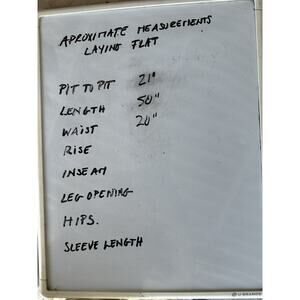 APROXIMATE MEASUREMENTS
LAYING FLAT
PIT TO PIT 21"
LENGTH 50"
WAIST 20"
RISE
INSEAM
LEG OPENING
HIPS.
SLEEVE LENGTH
U BRANDS